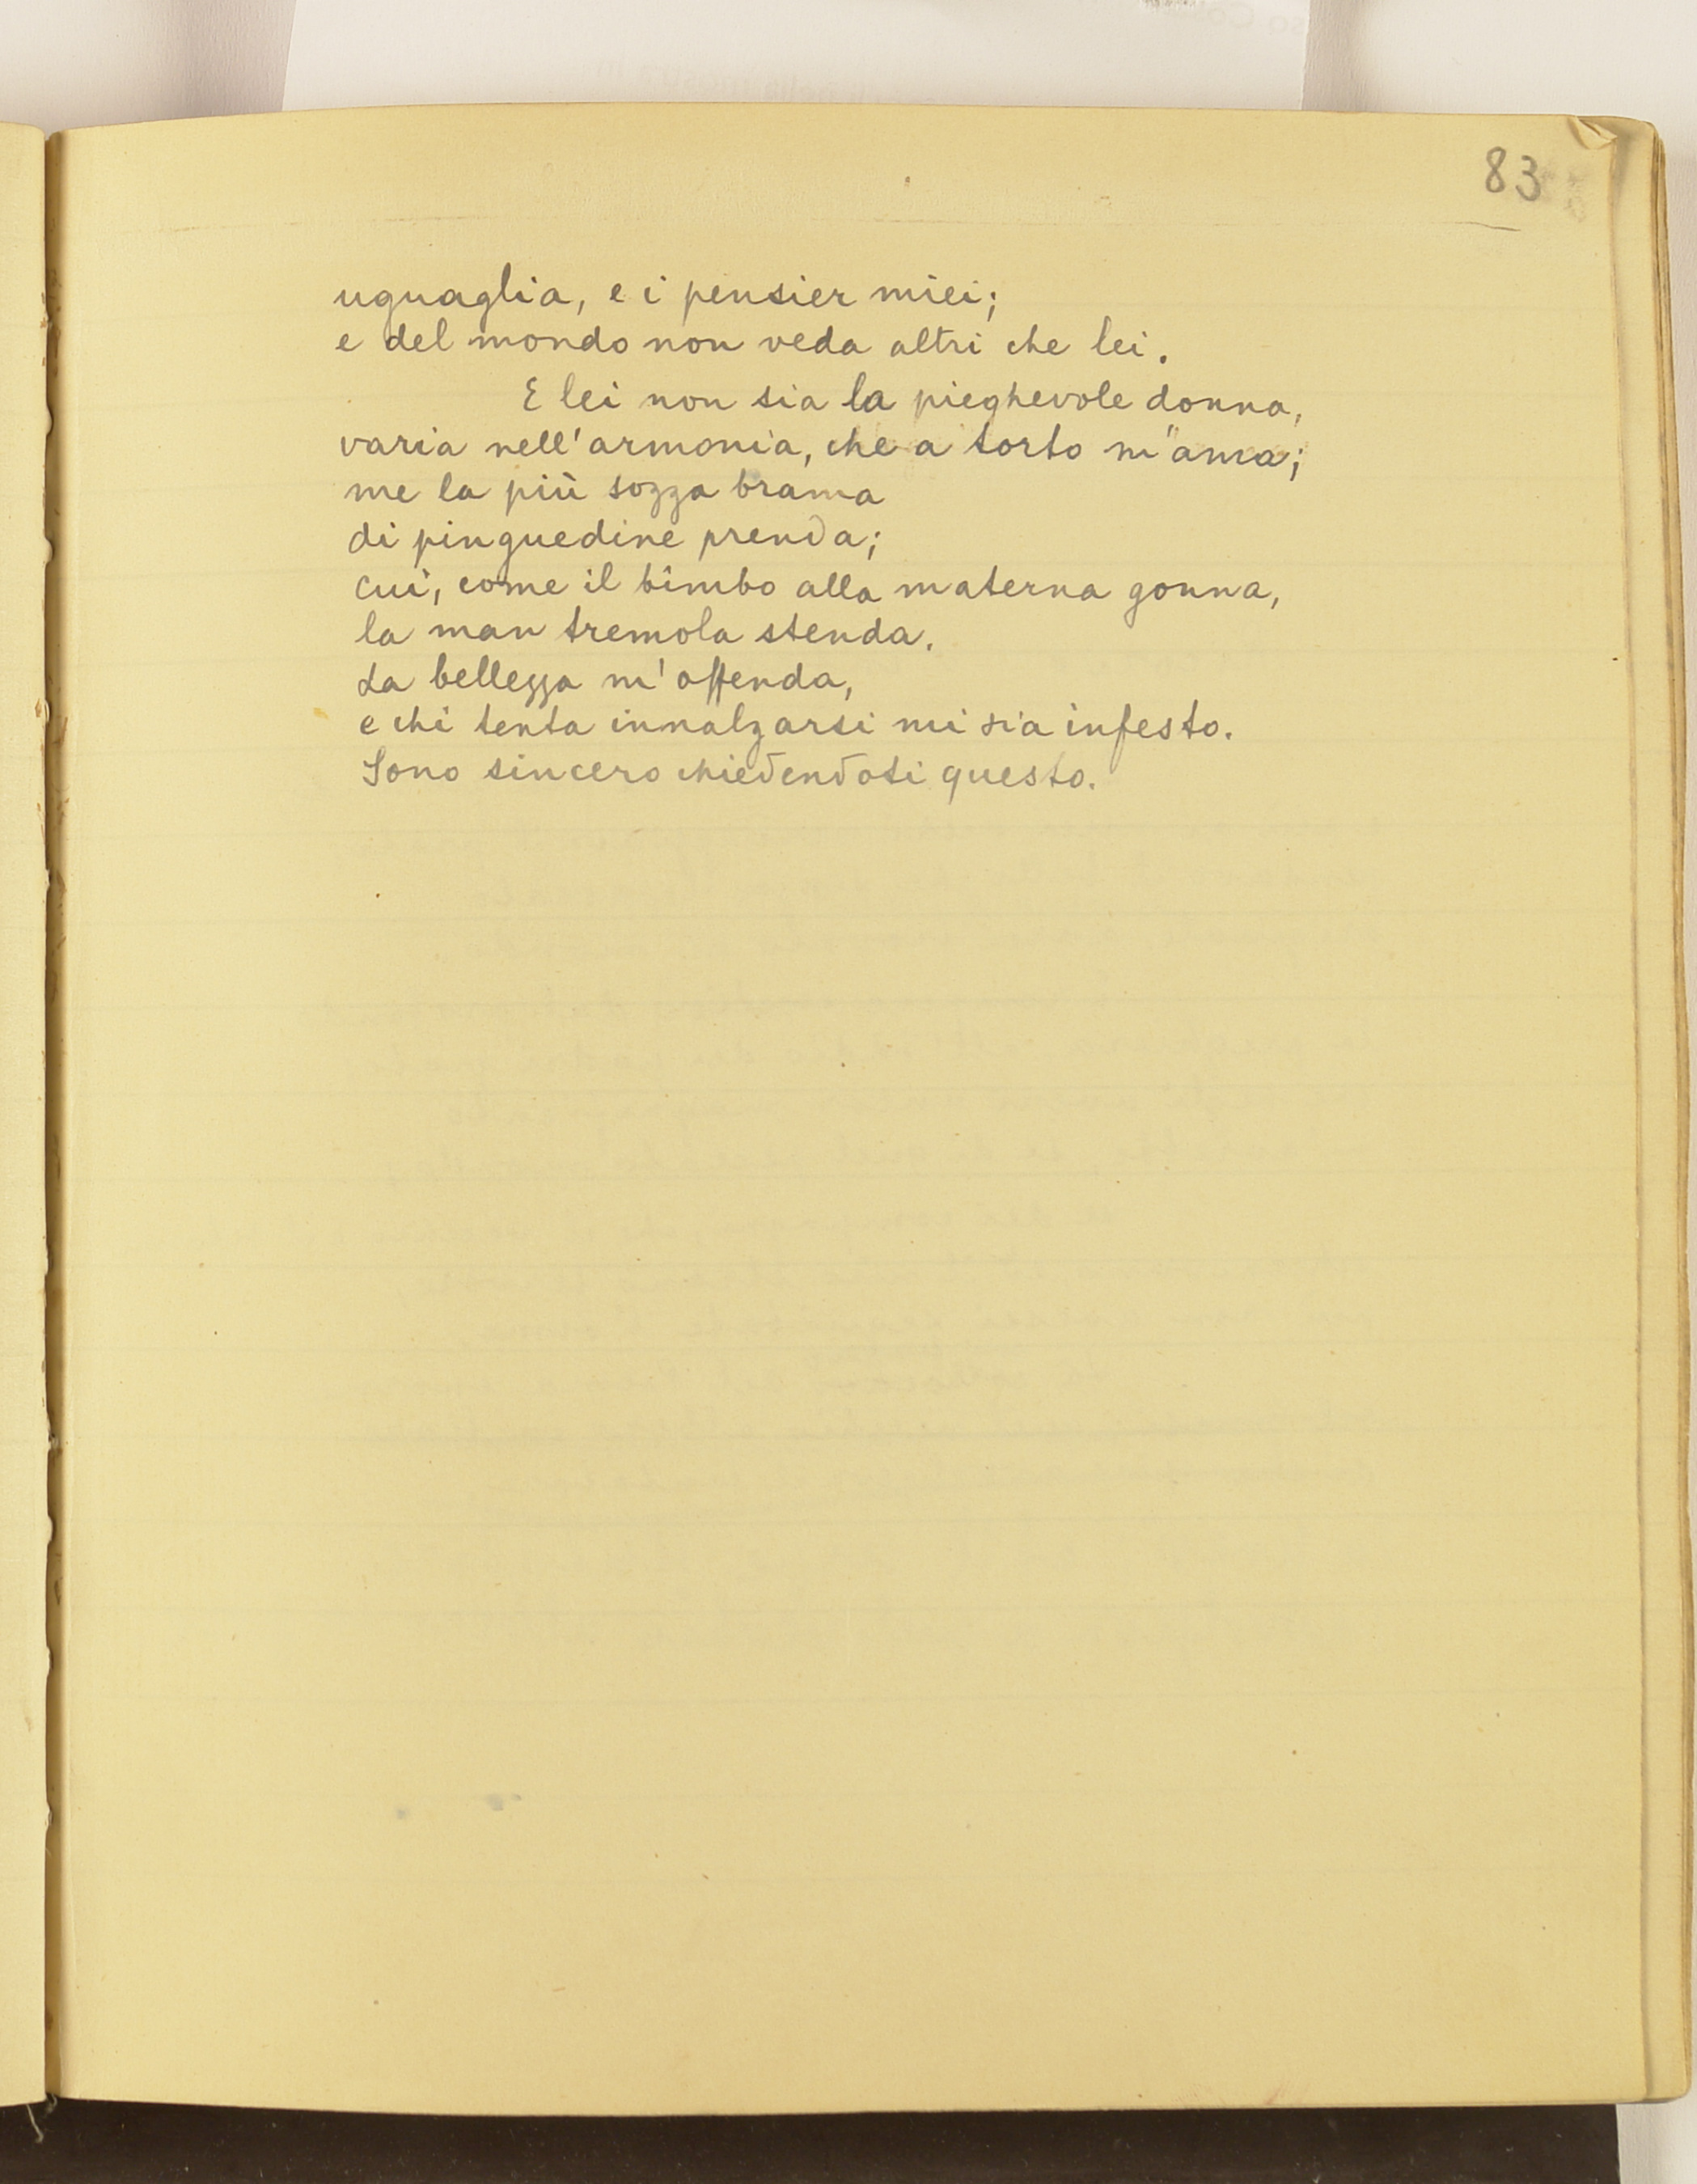 83
uguaglia, e i pensier miei;
e del mondo non veda altri che lei.
E lei non sia la pieghevole donna,
varia nell'armonia, che a torto m'ama;
me la più sozza brama
di pinguedine prenda;
cui, come il bimbo alla materna gonna,
la man tremola stenda.
La bellezza m'offenda,
e chi tenta innalzarsi mi sia infesto.
Sono sincero chiedendoti questo.